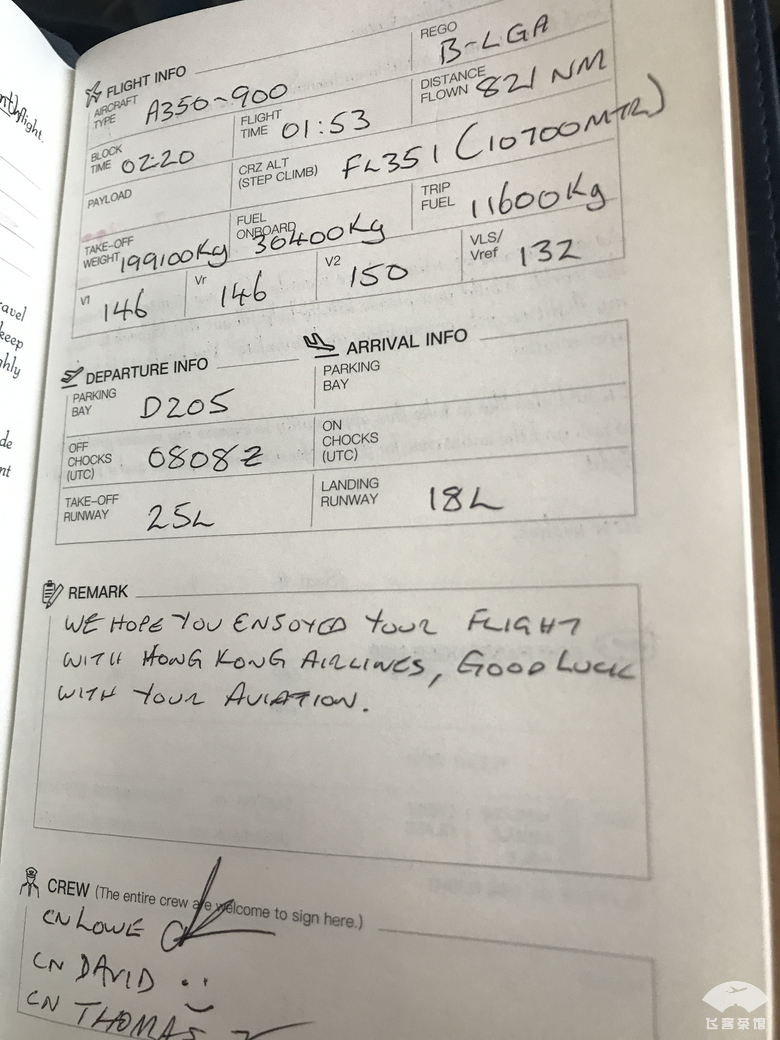 nthflight.
ravel
keep
ghly
de
nt
FLIGHT INFO
AIRCRAFT TYPE A350-900
REGO B-LGA
BLOCK TIME 02:20
FLIGHT TIME 01:53
DISTANCE FLOWN 821 NM
PAYLOAD
CRZ ALT (STEP CLIMB) FL351 (10700MTR)
TAKE-OFF WEIGHT 199100Kg
FUEL ONBOARD 36400Kg
TRIP FUEL 11600Kg
V1 146
Vr 146
V2 150
VLS/Vref 132
DEPARTURE INFO
ARRIVAL INFO
PARKING BAY D205
PARKING BAY
OFF CHOCKS (UTC) 0808Z
ON CHOCKS (UTC)
TAKE-OFF RUNWAY 25L
LANDING RUNWAY 18L
REMARK
WE HOPE YOU ENJOYED YOUR FLIGHT
WITH HONG KONG AIRLINES, GOOD LUCK
WITH YOUR AVIATION.
CREW (The entire crew are welcome to sign here.)
CN LOWE
CN DAVID
CN THOMAS
飞客茶馆